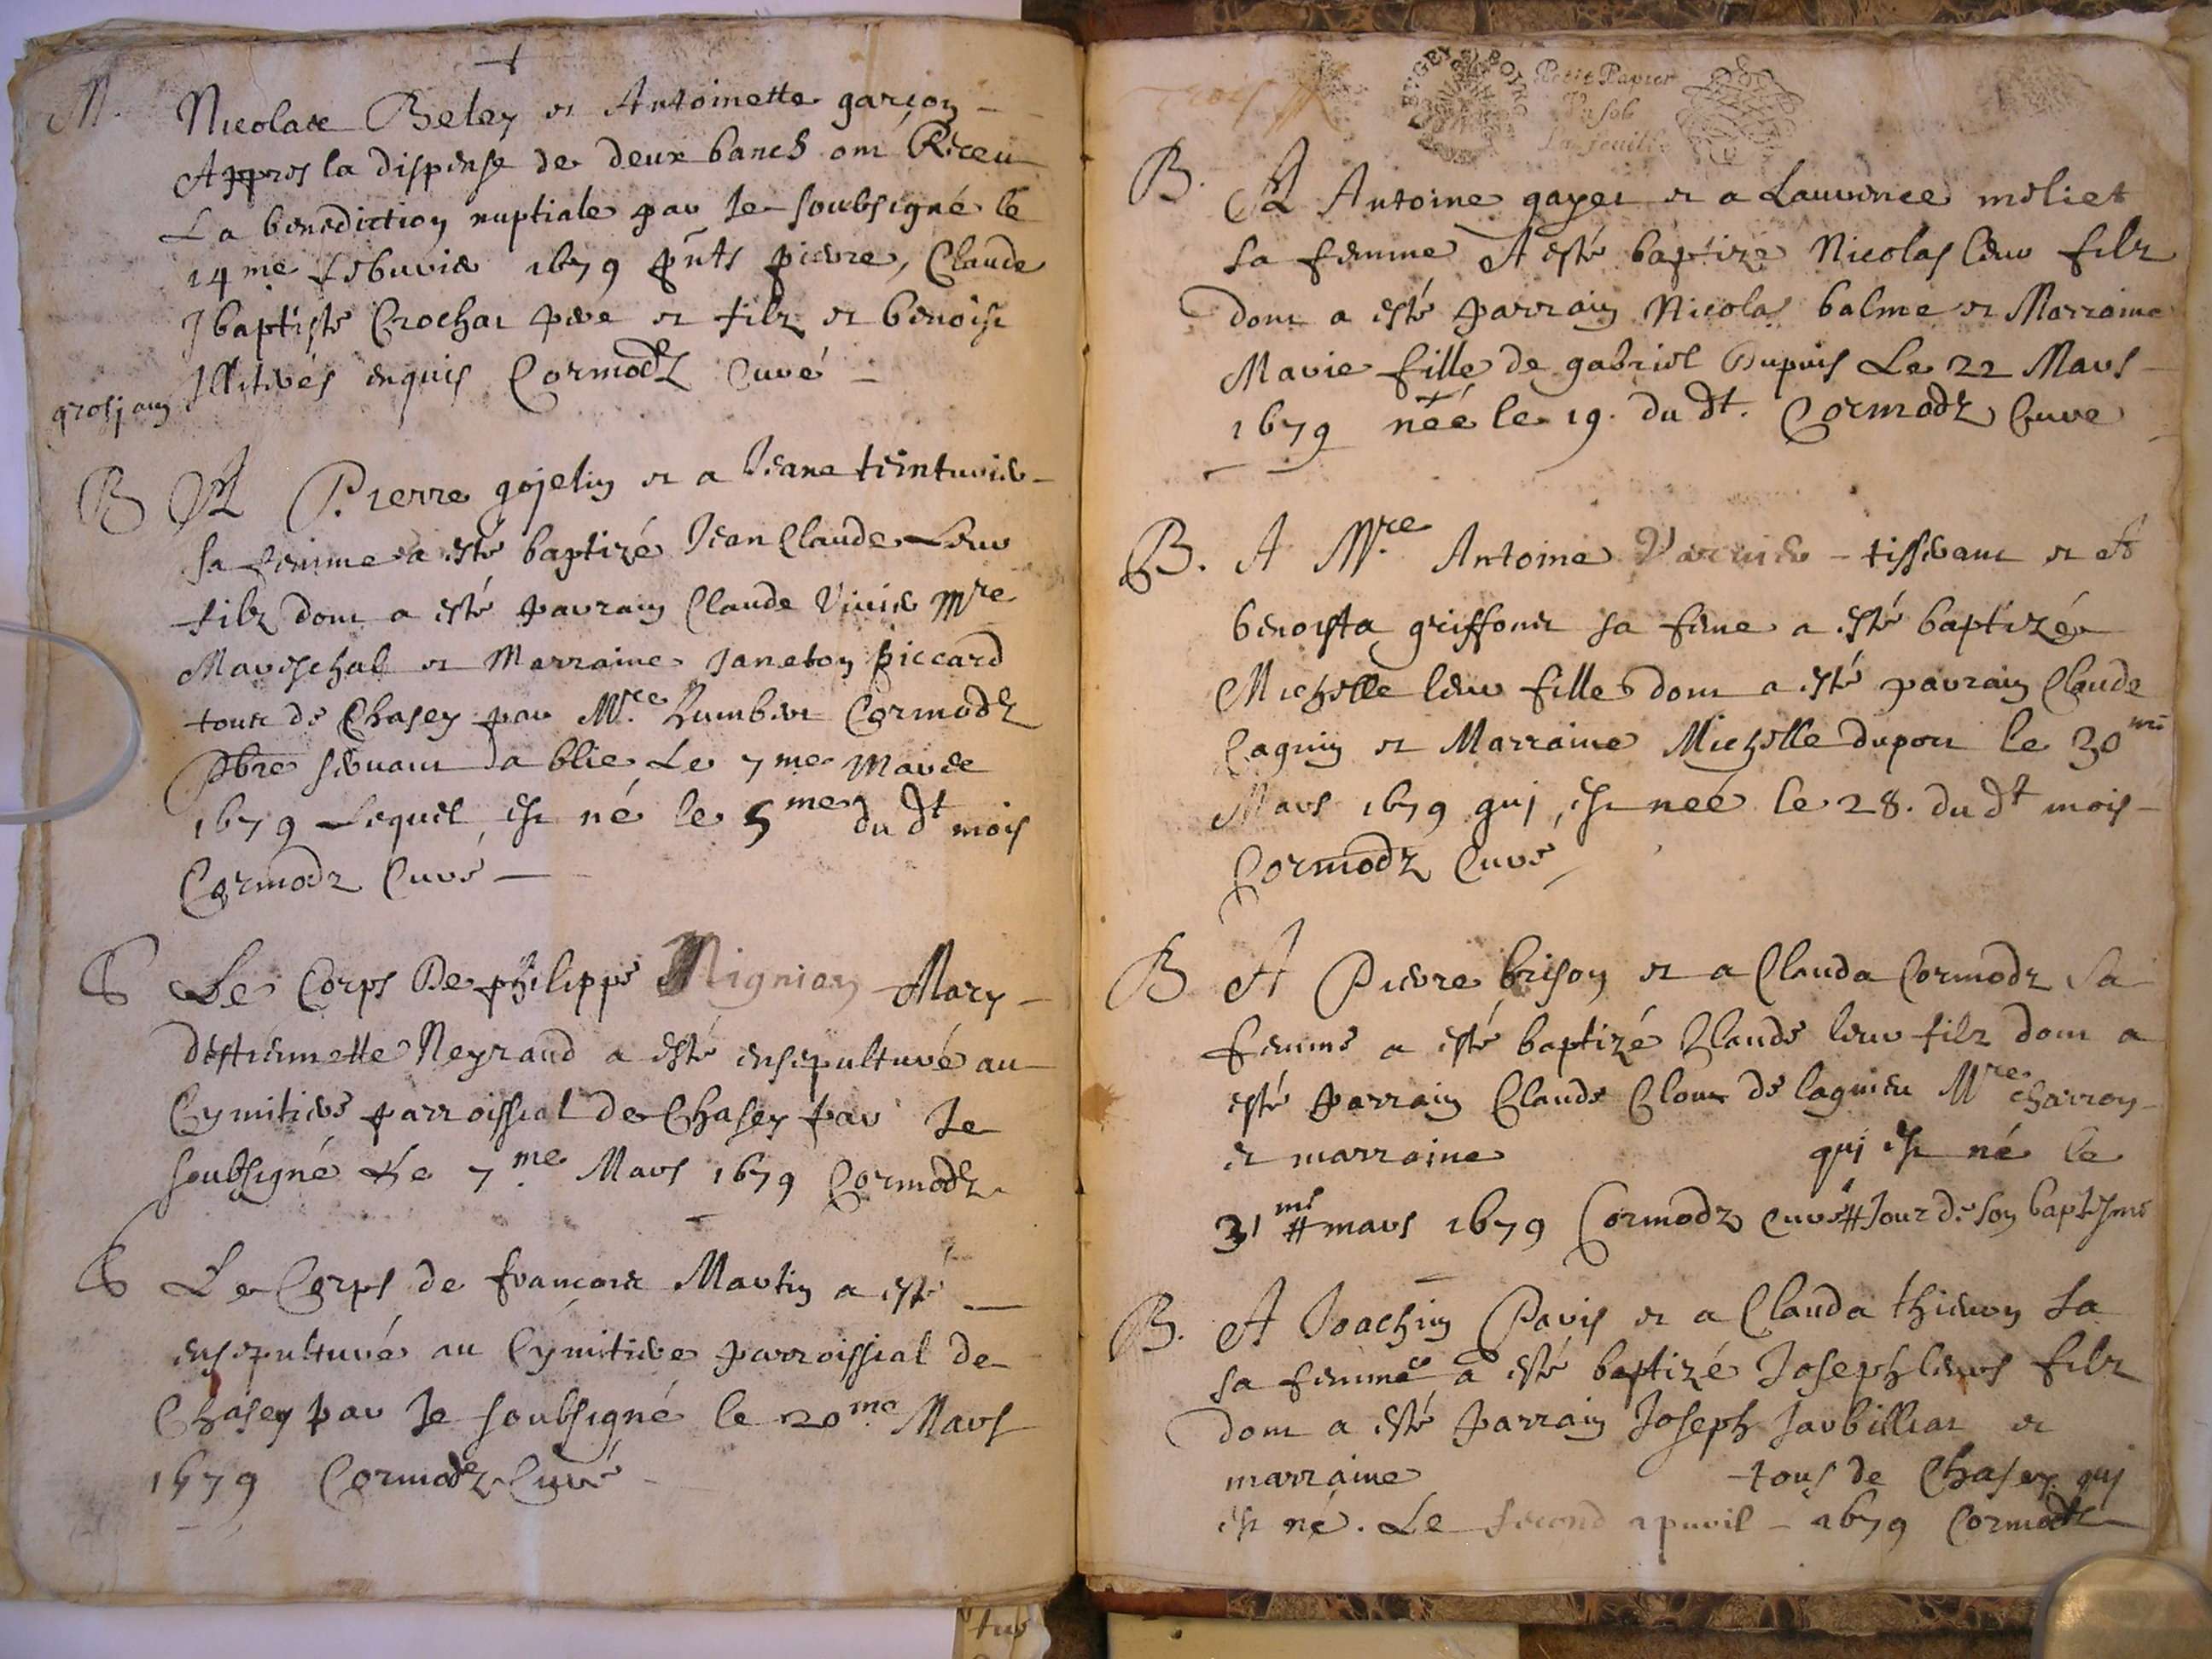 M. Nicolas Beley et Antoinette garçon
Appres la dispense de deux bancs ont Receu
La benediction nuptiale par Je soubsigné le
14me febvrier 1679 pnts pierre, Claude
Jbaptiste Crochat pere et filz et benoist
grosjean Illiteres enquis Cormodz Curé
B A Pierre gojelin et a Jeane teinturier
sa femme a esté baptizé Jean Claude Leur
filz dont a esté parrain Claude Vivier Mre
Mareschal et Marraine Janeton piccard
tous de Chasey par Mre humbert Cormodz
Pbre servant da blie Le 7me Mars
1679 Lequel est né le 5me du dt mois
Cormodz Curé
Le Corps De philippe Mignian Mary
destiennette Neyraud a esté ensepulturé au
Cymitiere parroissial de Chasey par Je
soubsigné Le 7me Mars 1679 Cormodz
Le Corps de francois Martin a esté
ensepulturé au Cymitiere parroissial de
Chasey par Je soubsigné le 20me Mars
1679 Cormodz Curé
trois
BVGEY BOVRG
Petit Papier
Un sol
La feuille
B. A Antoine gayet et a Laurence meliet
sa femme A esté baptizé Nicolas leur filz
dont a esté parrain Nicolas balme et Marraine
Marie fille de gabriel Dupuis Le 22 Mars
1679 née le 19. du dt. Cormodz Cure
B. A Mre Antoine Varnier tisserant et A
benoista griffonet sa feme a esté baptizée
Michelle leur fille dont a esté parrain Claude
Cagnin et Marraine Michelle dupont le 30me
Mars 1679 quj est neé le 28. du dt mois
Cormodz Curé
B A Pierre brison et a Clauda Cormodz sa
femme a esté baptizé Claude leur filz dont a
esté parrain Claude Clour de lagnieu Mre charron
et marraine quj est né le
31me # mars 1679 Cormodz Curé # Jour de son baptesme
B. A Joachim Pavis et a Clauda thieron sa
sa femme a esté baptizé Joseph leurs filz
dont a esté parrain Joseph Jarbilliat et
marraine tous de Chasey quj
est né. Le second apvril 1679 Cormodz